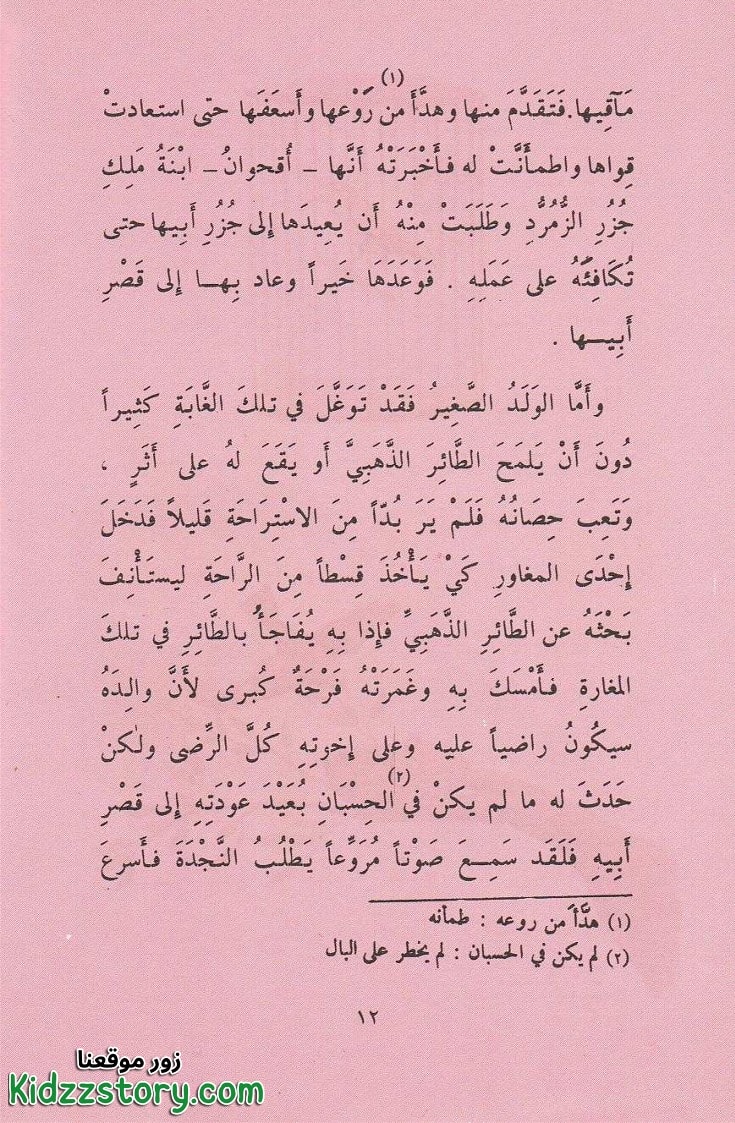 مَآقِيها. فَتَقَدَّمَ منها وهدَّأَ من رَوْعِها (١) وأَسعَفَها حتى استعادتْ
قِواها واطمـأَنَّتْ له فـأَخْبَرَتْهُ أَنَّها - أُقحوانُ - ابْنَةُ مَلِكِ
جُزُرِ الزُّمُرُّدِ وَطَلَبَتْ مِنْهُ أَن يُعِيدَها إلى جُزُرِ أَبِيها حتى
تُكَافِئَهُ على عَمَلِهِ . فَوَعَدَهَا خَيراً وعاد بِهـا إلى قَصْرِ
أَبِيـها .
وأَمَّا الوَلَدُ الصَّغِيرُ فَقَدْ تَوَغَّلَ في تلكَ الغَّابَةِ كَثِيراً
دُونَ أَنْ يَلمَحَ الطَّائِرَ الذَّهَبِيَّ أَو يَقَعَ لهُ على أَثَرٍ ،
وَتَعِبَ حِصَانُهُ فَلَمْ يَرَ بُدّاً مِنَ الاسْتِرَاحَةِ قَليلاً فَدَخَلَ
إِحْدَى المغاورِ كَيْ يَـأْخُذَ قِسْطاً مِنَ الرَّاحَةِ ليستَـأْنِفَ
بَحْثَهُ عن الطَّائِرِ الذَّهَبِيِّ فإِذا بِهِ يُفَاجَأُ بالطَّائِرِ في تلكَ
المغارةِ فـأَمْسَكَ بِهِ وغَمَرَتْهُ فَرْحَةٌ كُبرى لأَنَّ والِدَهُ
سيكُونُ راضياً عليه وعلى إخوتِهِ كُلَّ الرِّضى ولٰكنْ
حَدَثَ له ما لم يكنْ في الحِسْبَانِ (٢) بُعَيْدَ عَوْدَتِهِ إلى قَصْرِ
أَبِيهِ فَلَقَد سَمِـعَ صَوْتاً مُرَوِّعاً يَطْلُبُ النَّجْدَةَ فـأَسرعَ
(١) هدَّأَ من روعه : طمأنه
(٢) لم يكن في الحسبان : لم يخطر على البال
١٢
زور موقعنا
Kidzzstory.com